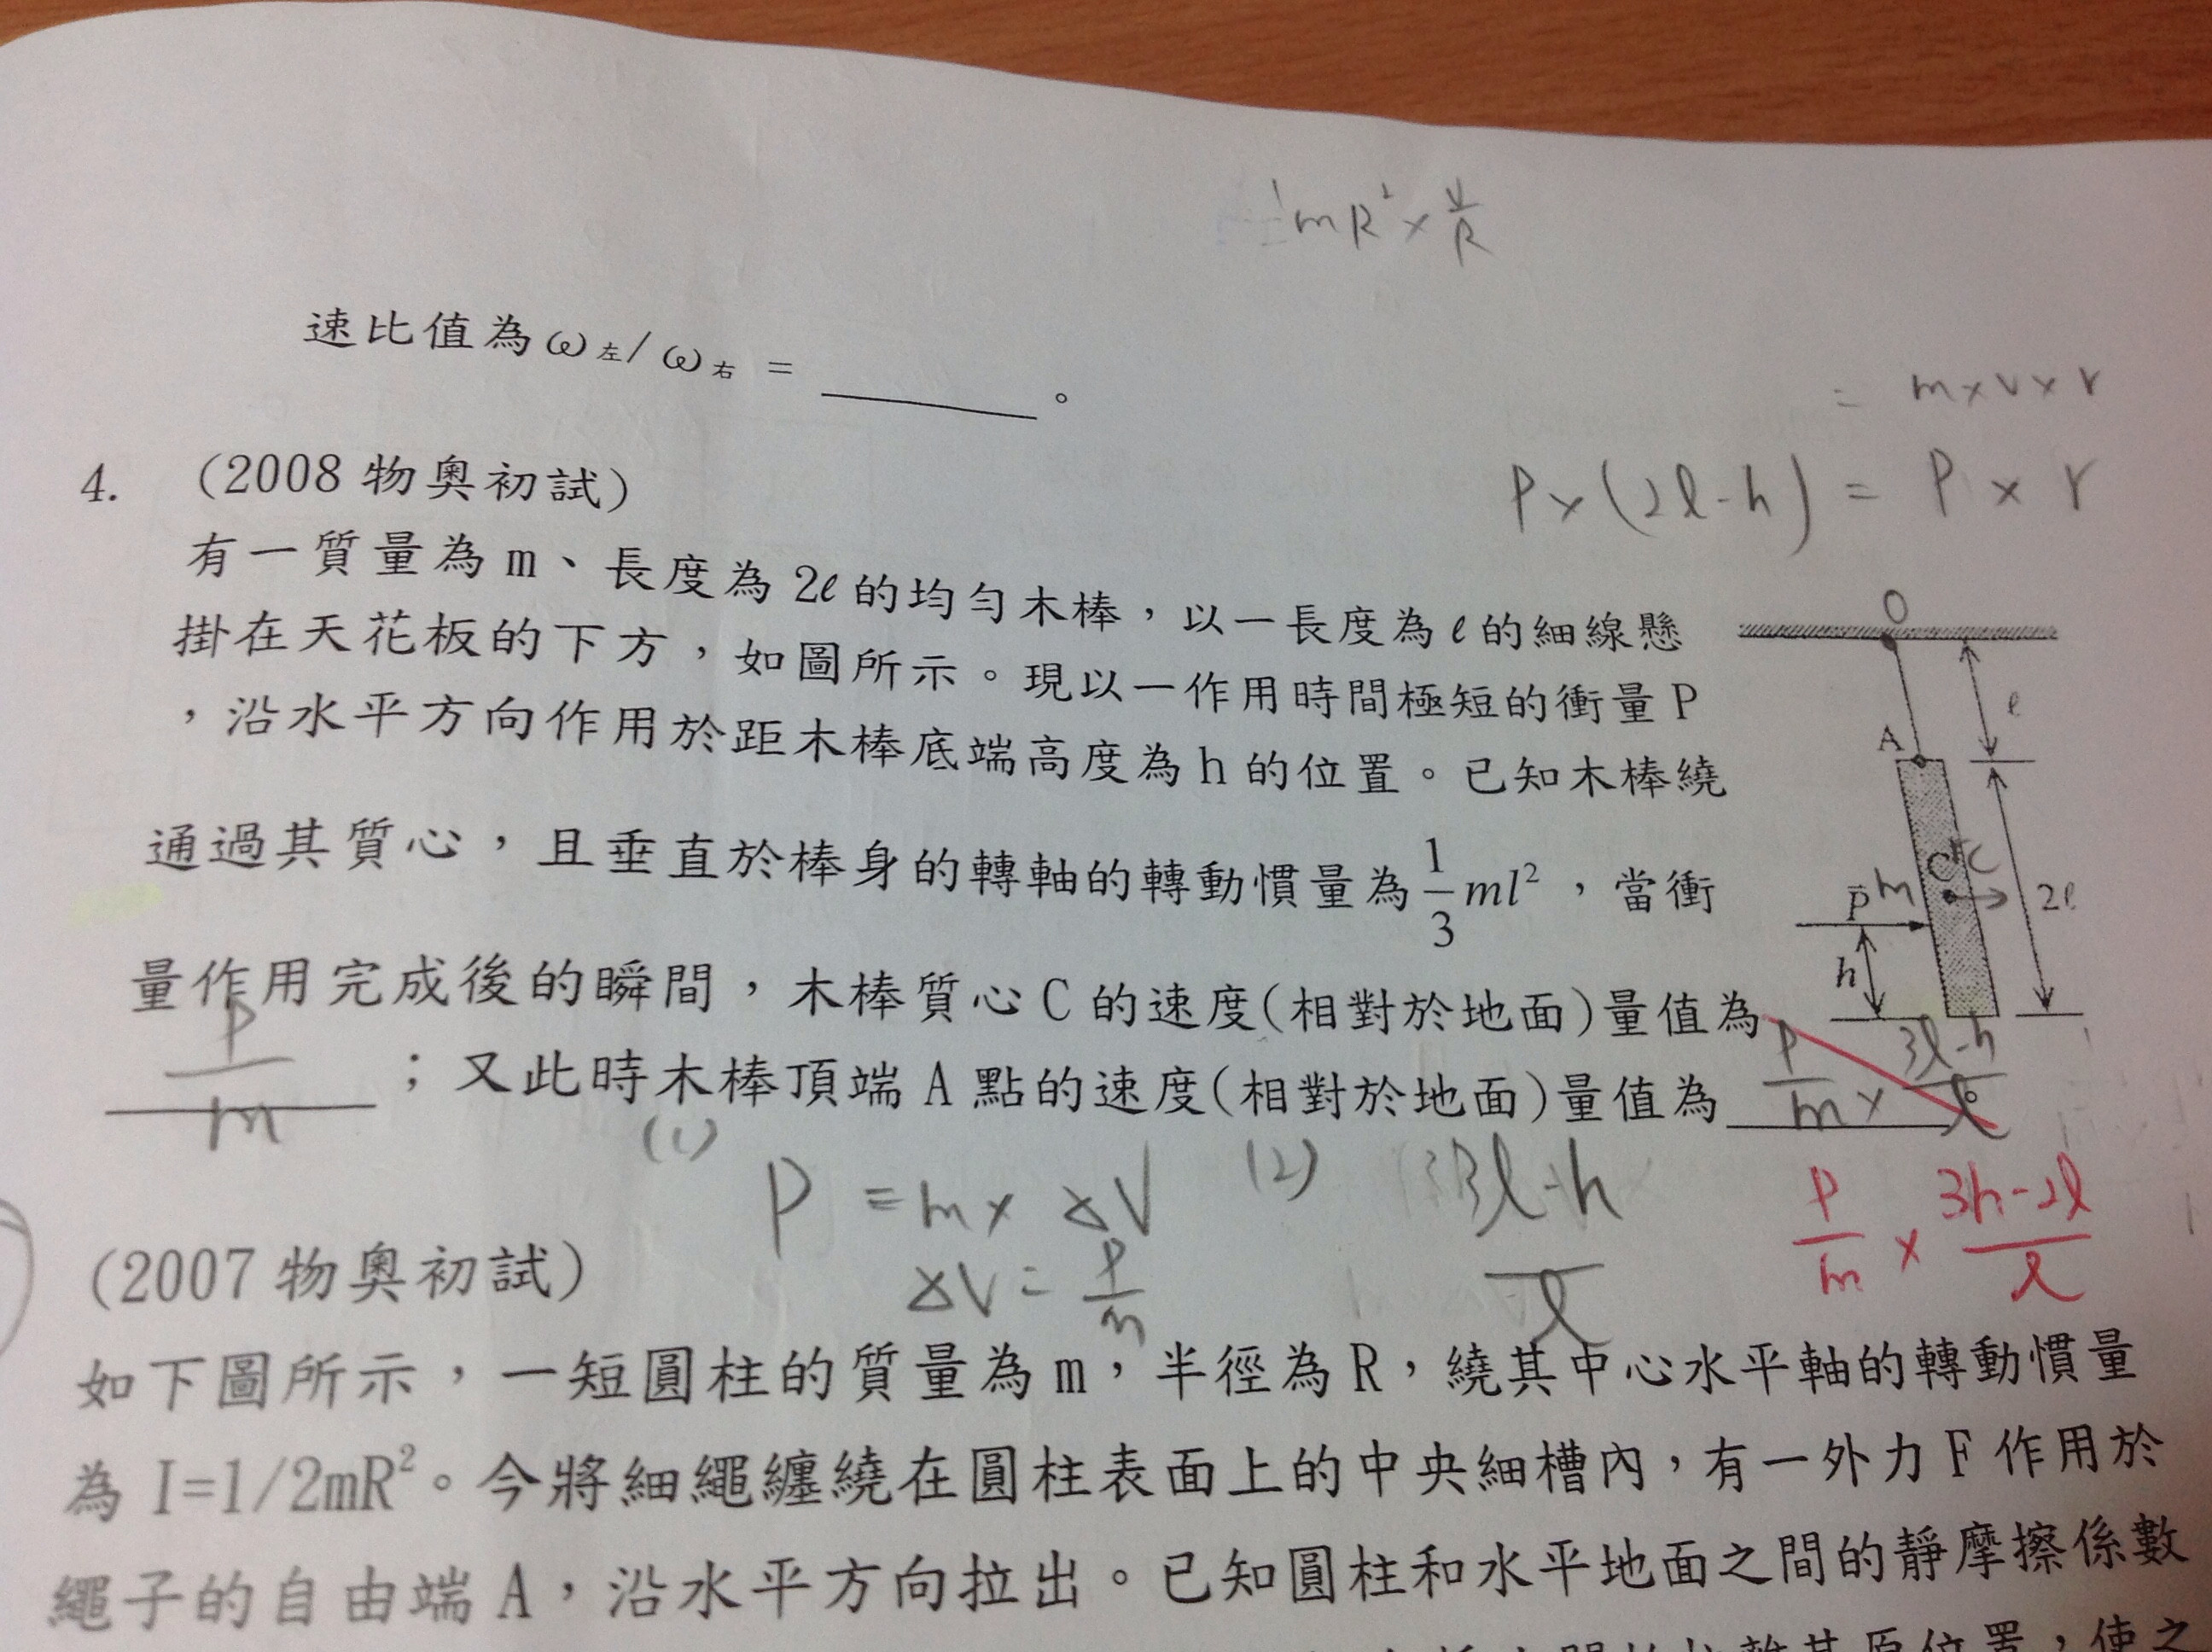 ½mR²×v/R
速比值為ω左/ω右 = ______。
= m×v×r
P×(2ℓ-h) = P × r
4. (2008 物奧初試)
有一質量為 m、長度為 2ℓ 的均勻木棒，以一長度為 ℓ 的細線懸
掛在天花板的下方，如圖所示。現以一作用時間極短的衝量 P
，沿水平方向作用於距木棒底端高度為 h 的位置。已知木棒繞
通過其質心，且垂直於棒身的轉軸的轉動慣量為 1/3 ml²，當衝
量作用完成後的瞬間，木棒質心 C 的速度(相對於地面)量值為
P/m ；又此時木棒頂端 A 點的速度(相對於地面)量值為 P/m × 3ℓ-h/ℓ 。
O
ℓ
A
C
C
P
m
2ℓ
h
(1) P = m× ΔV
ΔV = P/m
(2) 3ℓ-h/ℓ
P/m × 3h-2ℓ/ℓ
(2007 物奧初試)
如下圖所示，一短圓柱的質量為 m，半徑為 R，繞其中心水平軸的轉動慣量
為 I=1/2mR²。今將細繩纏繞在圓柱表面上的中央細槽內，有一外力 F 作用於
繩子的自由端 A，沿水平方向拉出。已知圓柱和水平地面之間的靜摩擦係數
其原位置，使之